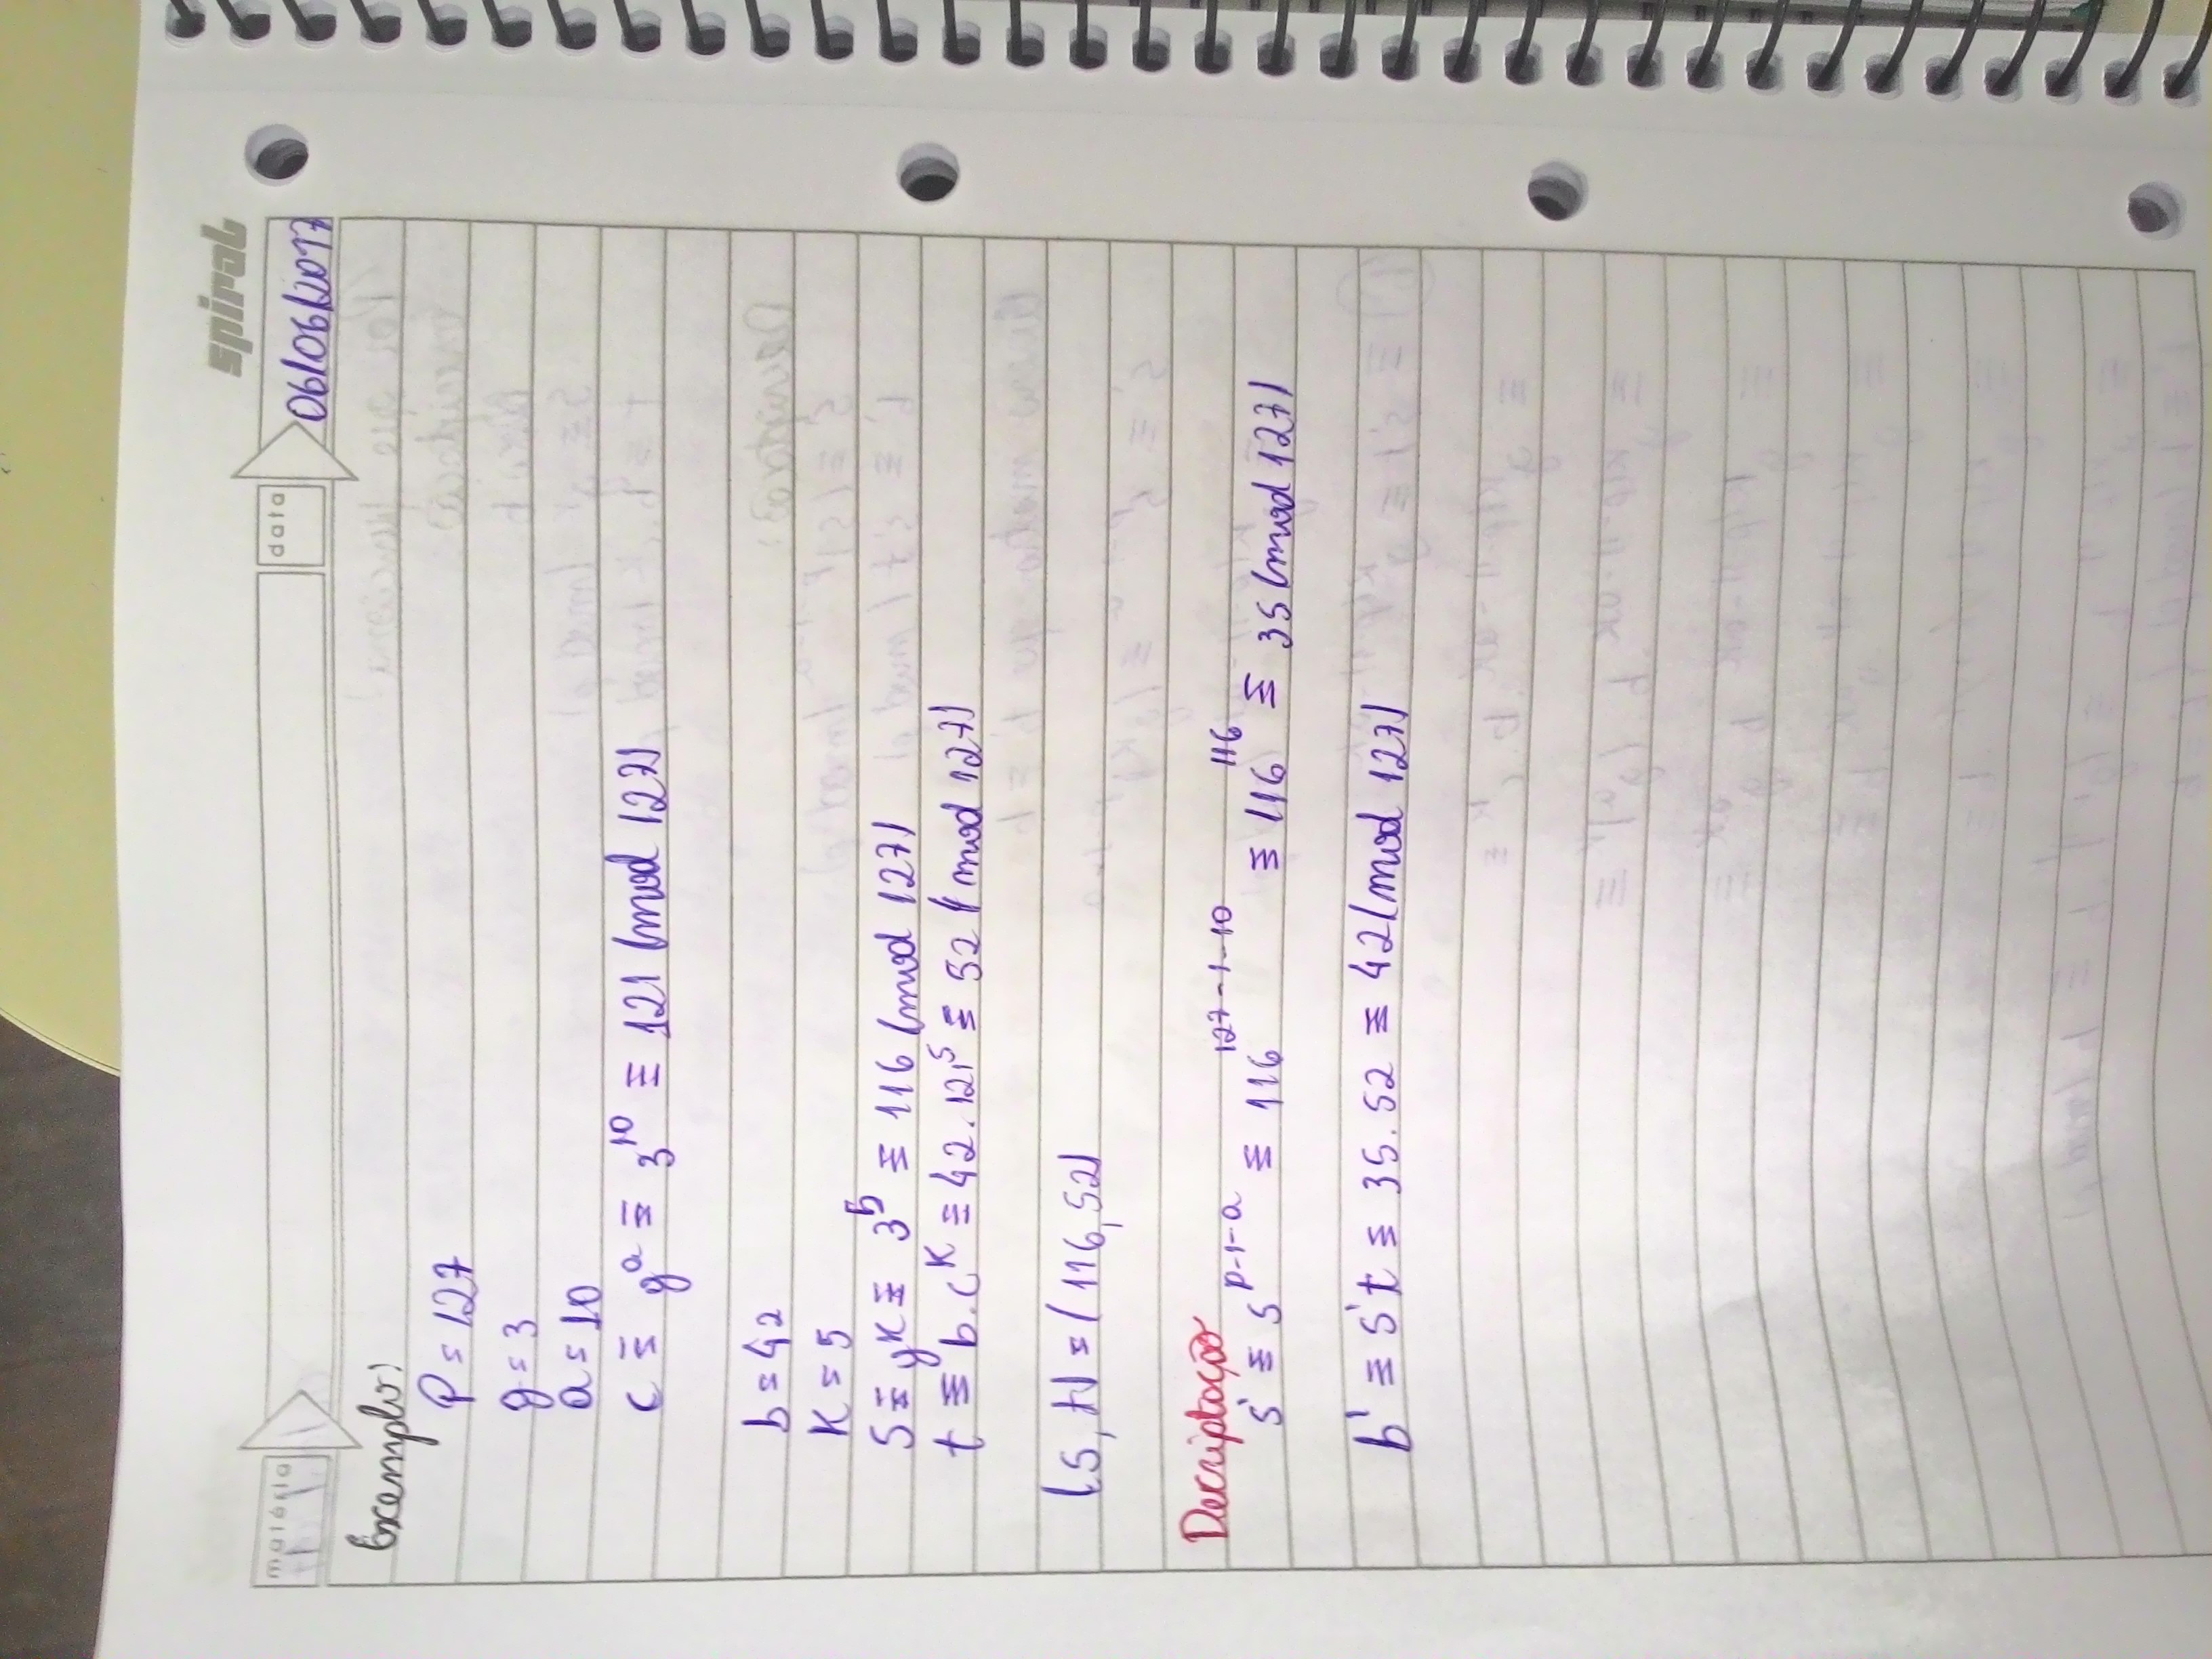 spiral
matéria data 06/06/2017
Exemplo:
P = 127
g = 3
a = 10
c ≡ g^a ≡ 3^10 ≡ 121 (mod 127)
b = 42
K = 5
S ≡ g^K ≡ 3^5 ≡ 116 (mod 127)
t ≡ b.c^K ≡ 42.121^5 ≡ 52 (mod 127)
(s, t) = (116, 52)
Decriptação
s' ≡ s^p-1-a ≡ 116^127-1-10 ≡ 116^116 ≡ 35 (mod 127)
b' ≡ s't ≡ 35.52 ≡ 42 (mod 127)